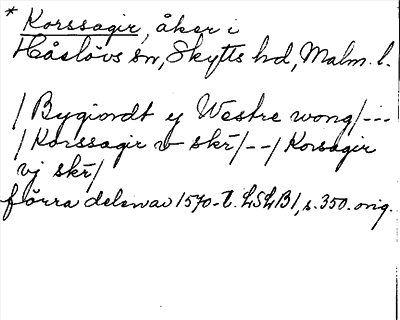 * Korssagir, åker i
Håslövs sn, Skytts hd, Malm. l.
/Bygiordt ij Westre wong/---
/Korssagir v skr̄/--/Korsagir
vj skr̄/
förra delen av 1570-t. LSLB1, s. 350. orig.